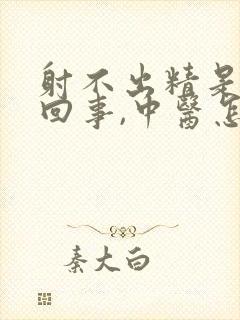 射不出精是
回事,中醫怎
秦大白